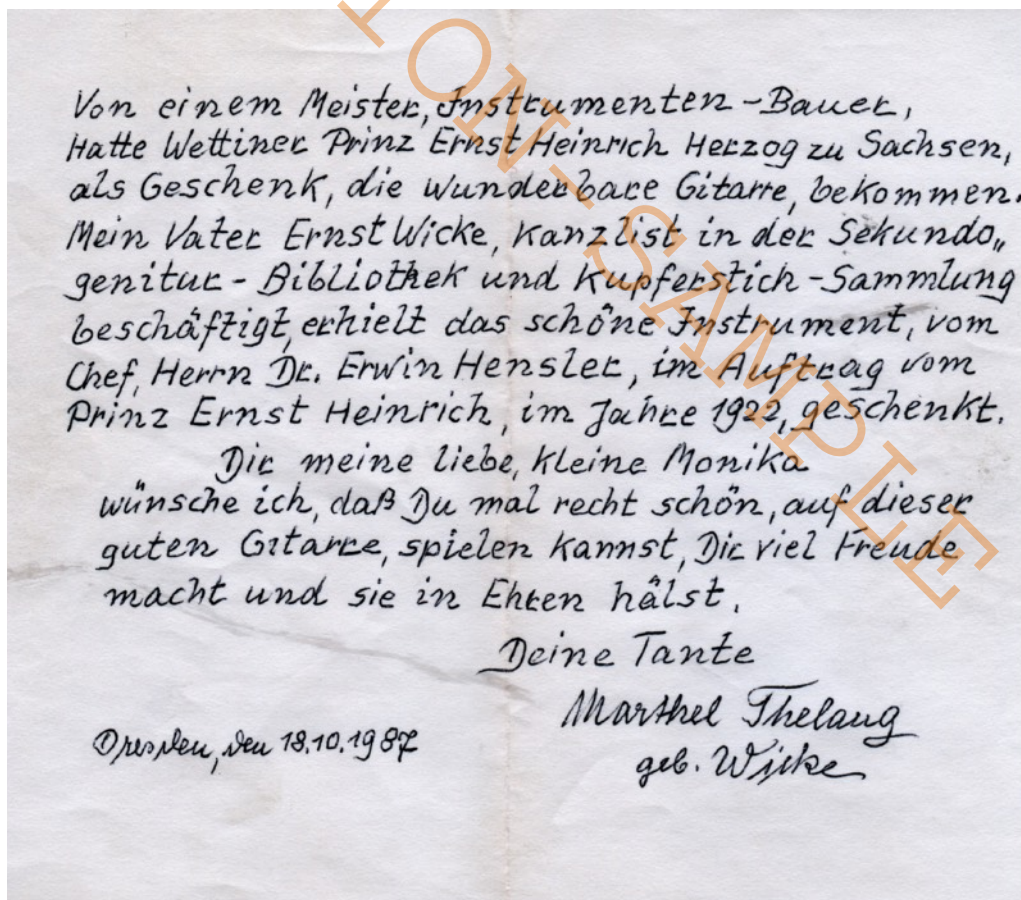 Von einem Meister, Instrumenten-Bauer,
Hatte Wettiner Prinz Ernst Heinrich Herzog zu Sachsen,
als Geschenk, die wunderbare Gitarre, bekommen.
Mein Vater Ernst Wicke, Kanzlist in der Sekundo„
genitur-Bibliothek und Kupferstich-Sammlung
beschäftigt, erhielt das schöne Instrument, vom
Chef, Herrn Dr. Erwin Hensler, im Auftrag vom
Prinz Ernst Heinrich, im Jahre 1922, geschenkt.
Dir meine liebe, kleine Monika
wünsche ich, daß Du mal recht schön, auf dieser
guten Gitarre, spielen kannst, Dir viel Freude
macht und sie in Ehren hälst.
Deine Tante
Marthel Thelaug
geb. Wicke
Dresden, den 18.10.1987
TON-SAMPLE